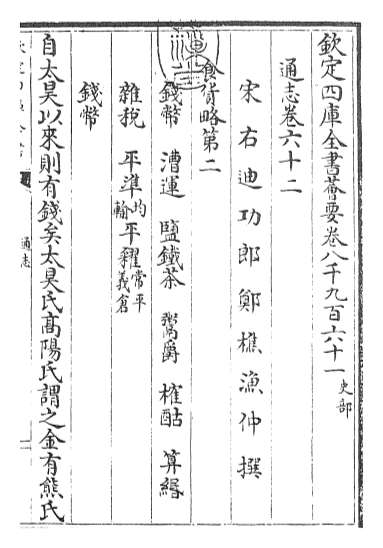 欽定四庫全書薈要卷八千九百六十一 史部
通志卷六十二
宋右迪功郎鄭樵漁仲撰
食貨略第二
錢幣 漕運 鹽鐵茶 鬻爵 榷酤 算緡
雜稅 平準均輸 平糴常平義倉
錢幣
自太昊以來則有錢矣太昊氏高陽氏謂之金有熊氏
通志